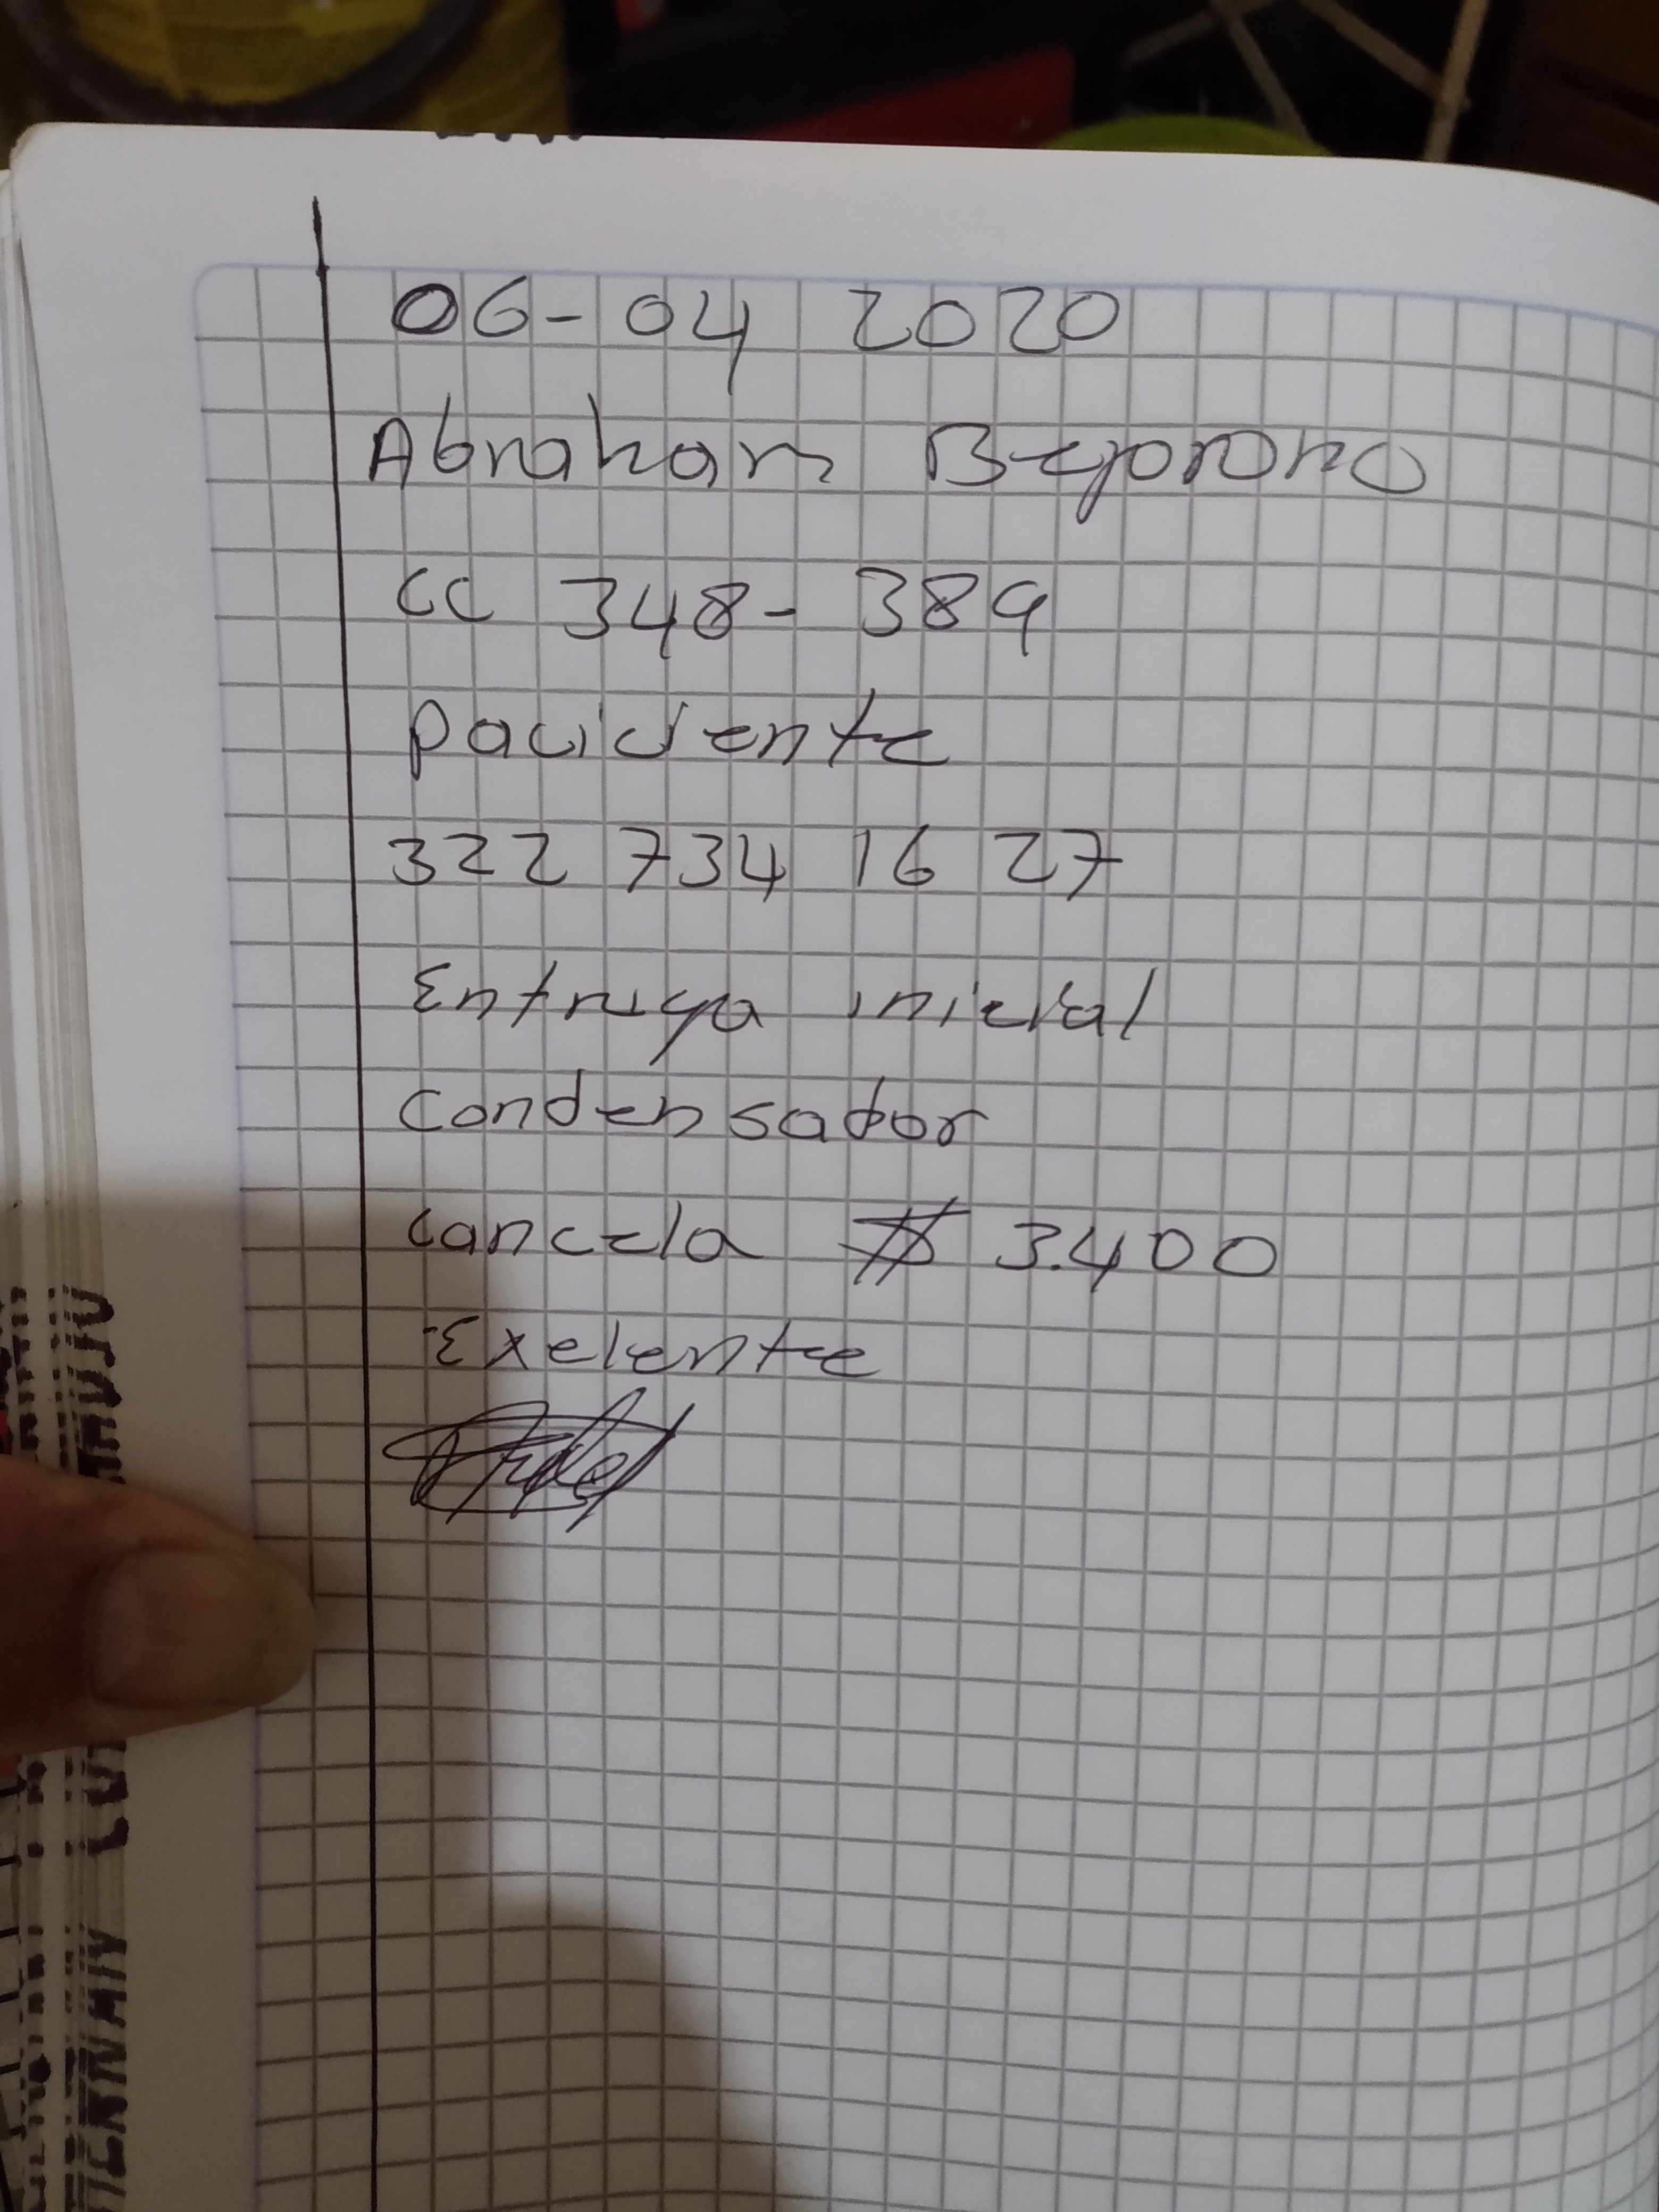 06-04 2020
Abraham Bejarano
CC 348-389
paciciente
322 734 16 27
Entrega inicial
condensador
cancela $ 3.400
Exelente